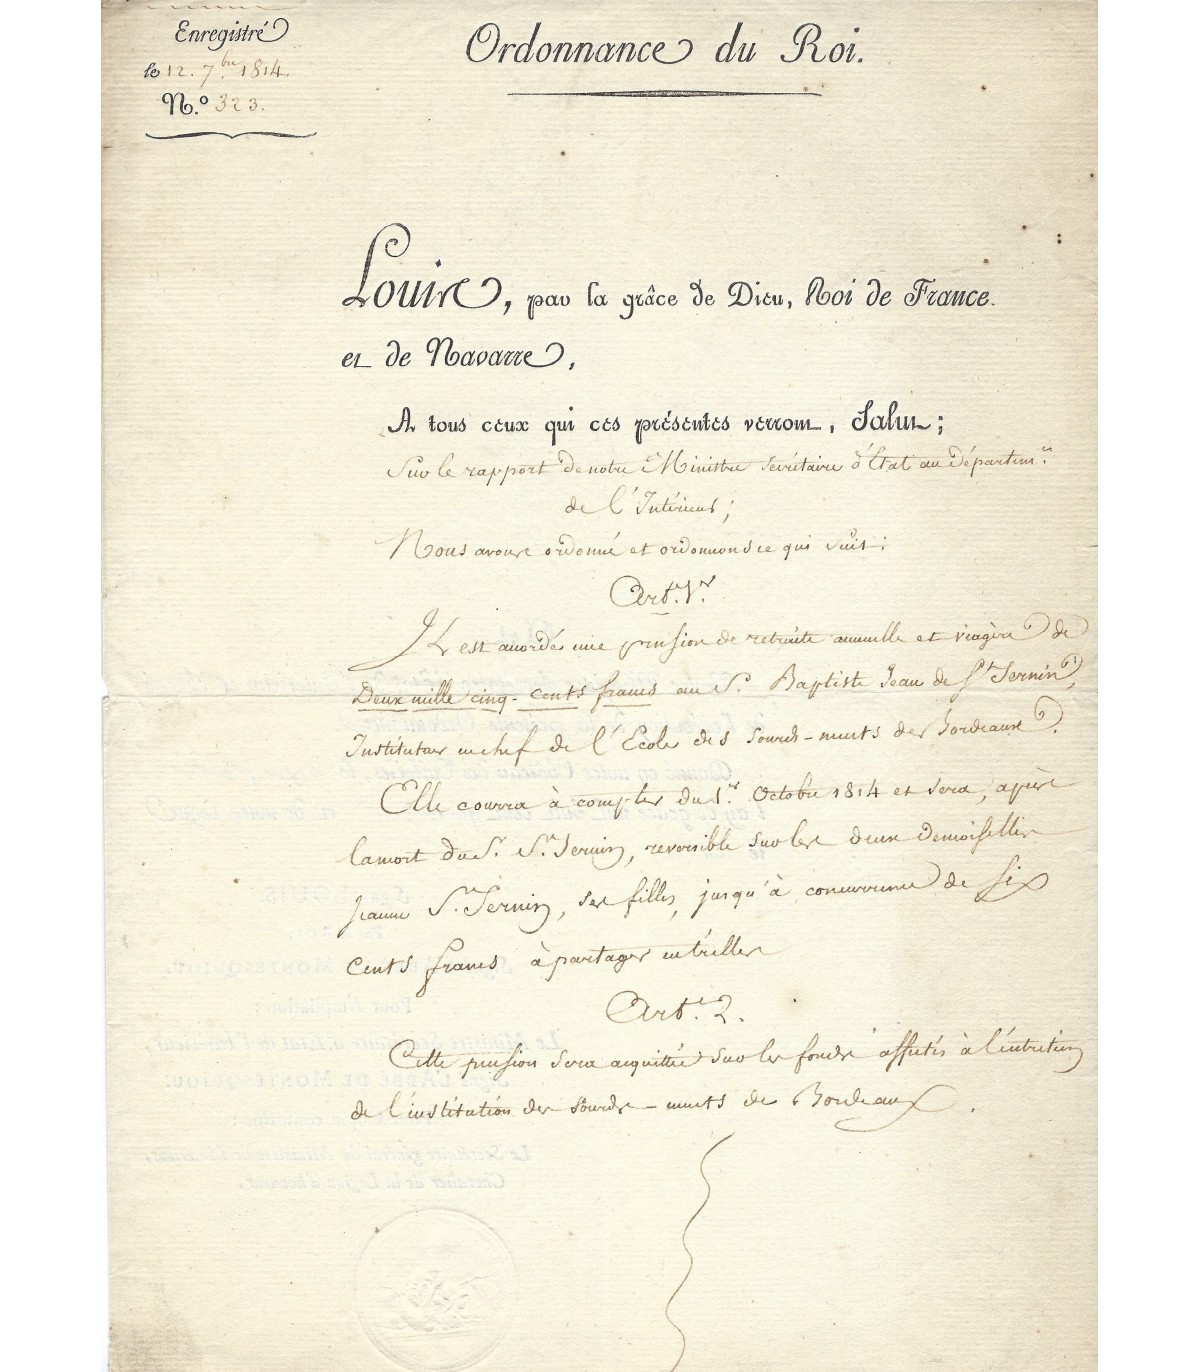 Enregistré
le 12. 7bre 1814.
N.° 323.
Ordonnance du Roi.
Louis, par la grâce de Dieu, Roi de France
et de Navarre,
A tous ceux qui ces présentes verront, Salut;
Sur le rapport de notre Ministre secrétaire d'État au départemt
de l'Intérieur;
Nous avons ordonné et ordonnons ce qui suit:
Art. 1er.
Il est accordé une pension de retraite annuelle et viagère de
Deux mille cinq-cents francs au Sr. Baptiste Jean de St Sernin,
Instituteur en chef de l'École des sourds-muets de Bordeaux.
Elle courra à compter du 1er Octobre 1814 et sera, après
la mort du Sr. St. Sernin, reversible sur les deux demoiselles
Jeanne St. Sernin, ses filles, jusqu'à concurrence de six
cents francs à partager entr'elles
Art. 2.
Cette pension sera acquittée sur les fonds affectés à l'entretien
de l'institution des sourds-muets de Bordeaux.